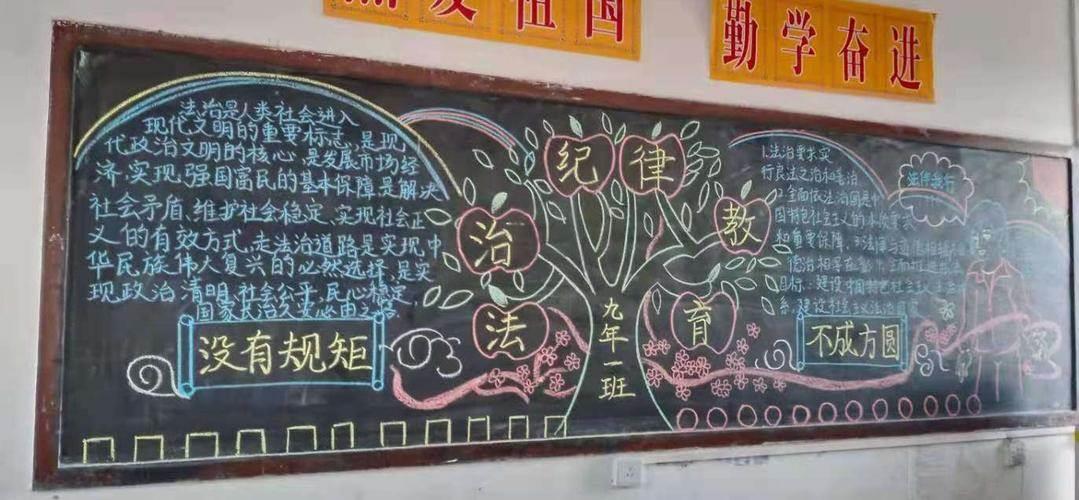 爱祖国
勤学奋进
法治是人类社会进入
现代文明的重要标志,是现
代政治文明的核心,是发展市场经
济,实现强国富民的基本保障,是解决
社会矛盾、维护社会稳定、实现社会正
义的有效方式。走法治道路是实现中
华民族伟大复兴的必然选择,是实
现政治清明,社会公平,民心稳定,
国家长治久安必由之路
没有规矩
法治纪律教育
九年一班
1.法治要求实
行良法之治和善治
2.全面依法治国是中
国特色社会主义的本质要求
和重要保障,3法律与道德相辅
德治相
目标:建设中国特色社会主义
系,建设社会主义法治国家
不成方圆